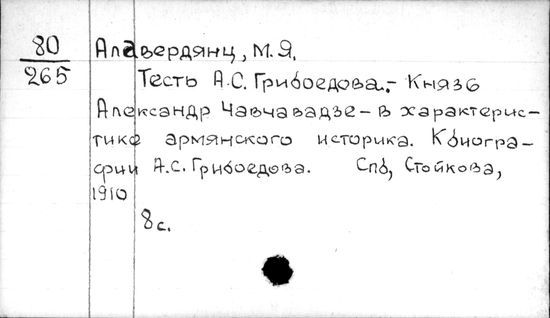 80
265
Алавердянц, М.Я.
Тесть А.С. Грибоедова.- Князь
Александр Чавчавадзе - в характерис-
тике армянского историка. К биогра-
фии А.С. Грибоедова. Спб, Стойкова,
1910
8с.